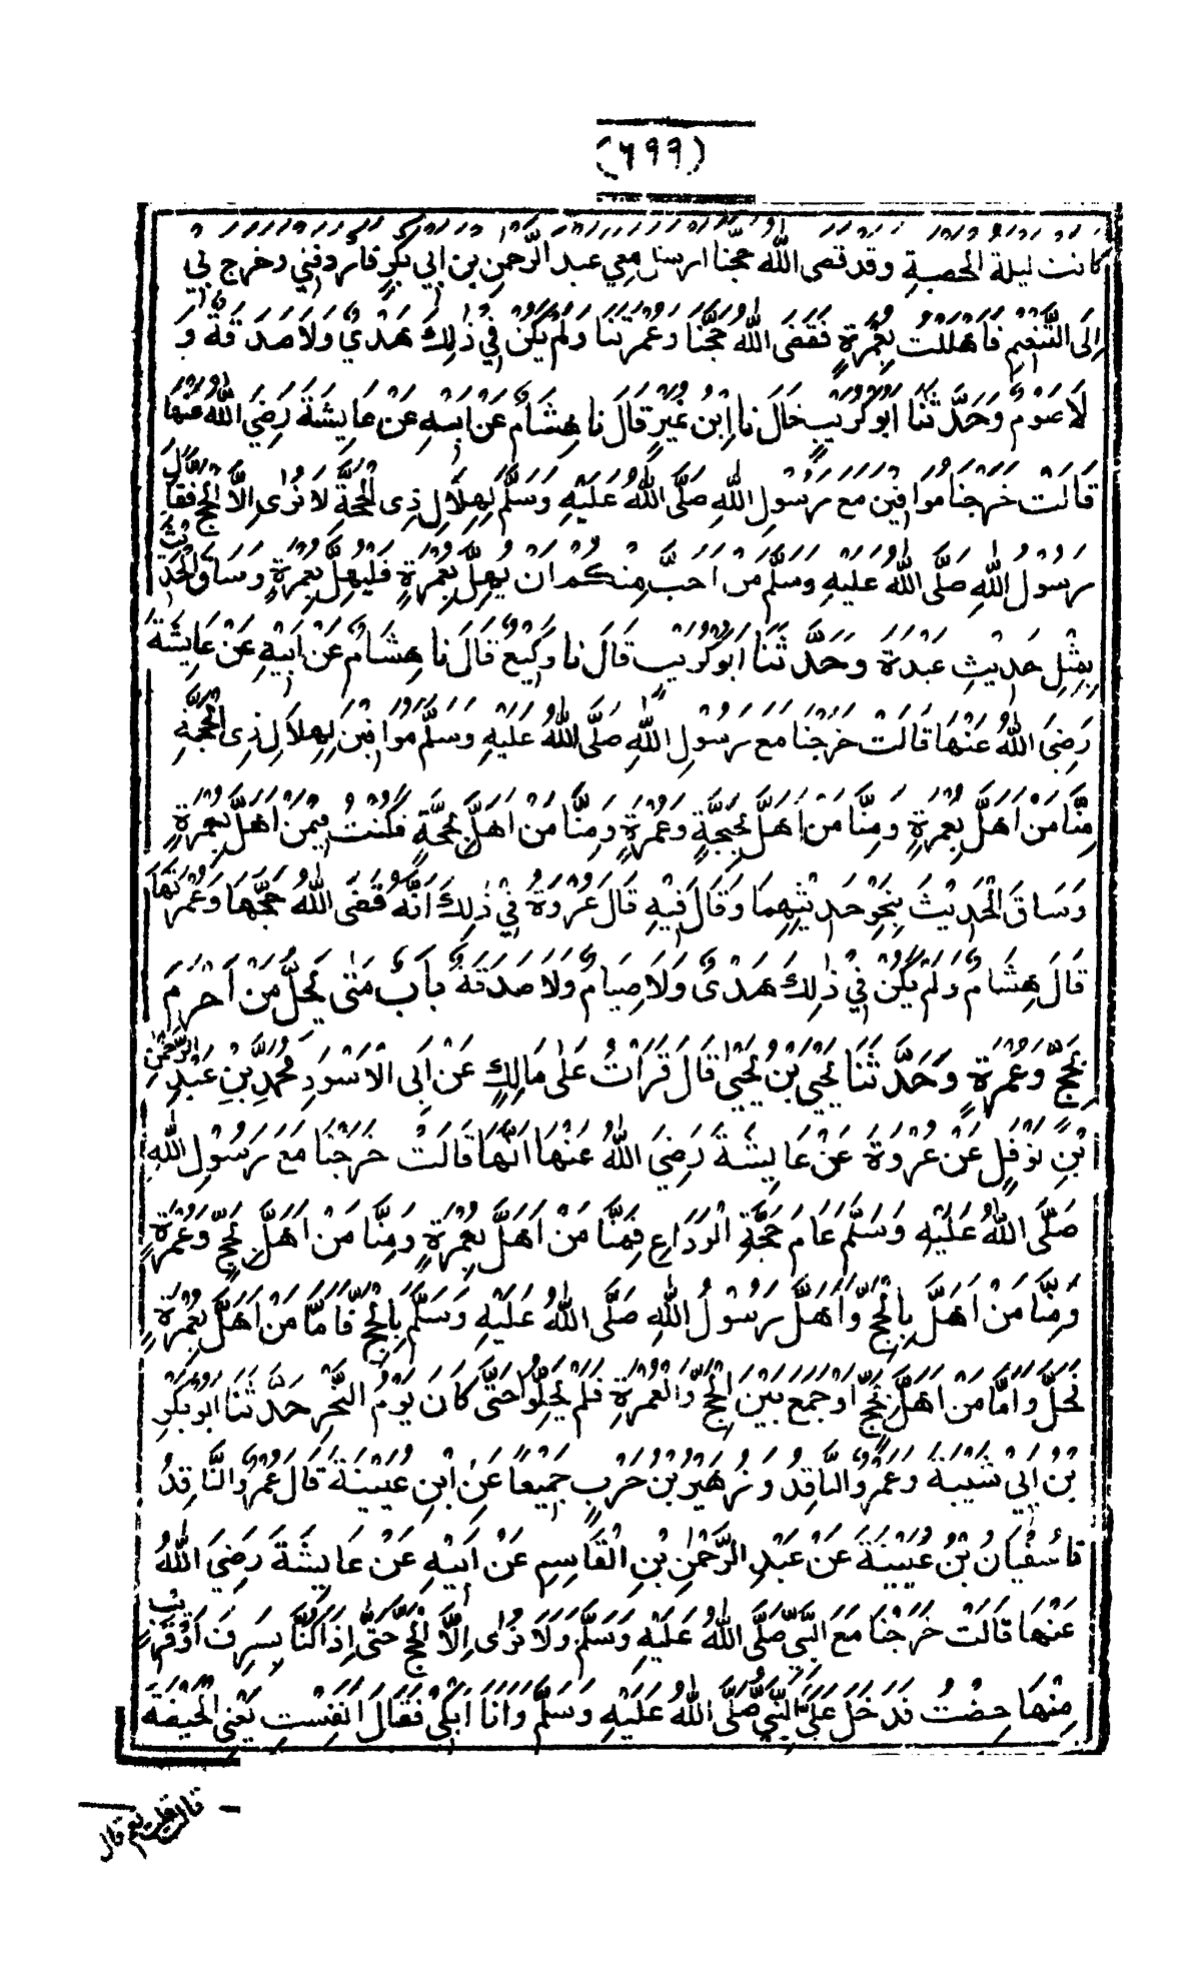 (٦٩٩)
كَانَتْ لَيْلَةُ الْحَصْبَةِ وَقَدْ قَضَى اللهُ حَجَّنَا اَرْسَلَ مَعِي عَبْدَ الرَّحْمٰنِ بْنَ اَبِي بَكْرٍ فَاَرْدَفَنِي وَخَرَجَ بِي
اِلَى التَّنْعِيْمِ فَاَهْلَلْتُ بِعُمْرَةٍ فَقَضَى اللهُ حَجَّنَا وَعُمْرَتَنَا وَلَمْ يَكُنْ فِيْ ذٰلِكَ هَدْيٌ وَلَا صَدَقَةٌ وَ
لَا صَوْمٌ وَحَدَّثَنَا اَبُوْ كُرَيْبٍ قَالَ نَا اِبْنُ نُمَيْرٍ قَالَ نَا هِشَامٌ عَنْ اَبِيْهِ عَنْ عَايِشَةَ رَضِيَ اللهُ عَنْهَا
قَالَتْ خَرَجْنَا مُوَافِيْنَ مَعَ رَسُوْلِ اللهِ صَلَّى اللهُ عَلَيْهِ وَسَلَّمَ لِهِلَالِ ذِى الْحَجَّةِ لَا نَرٰى اِلَّا الْحَجَّ فَقَالَ
رَسُوْلُ اللهِ صَلَّى اللهُ عَلَيْهِ وَسَلَّمَ مَنْ اَحَبَّ مِنْكُمْ اَنْ يُهِلَّ بِعُمْرَةٍ فَلْيُهِلَّ بِعُمْرَةٍ وَسَاقَ الْحَدِيْثَ
بِمِثْلِ حَدِيْثِ عَبْدَةَ وَحَدَّثَنَا اَبُوْ كُرَيْبٍ قَالَ نَا وَكِيْعٌ قَالَ نَا هِشَامٌ عَنْ اَبِيْهِ عَنْ عَايِشَةَ
رَضِيَ اللهُ عَنْهَا قَالَتْ خَرَجْنَا مَعَ رَسُوْلِ اللهِ صَلَّى اللهُ عَلَيْهِ وَسَلَّمَ مُوَافِيْنَ لِهِلَالِ ذِى الْحَجَّةِ
مِنَّا مَنْ اَهَلَّ بِعُمْرَةٍ وَمِنَّا مَنْ اَهَلَّ بِحَجَّةٍ وَعُمْرَةٍ وَمِنَّا مَنْ اَهَلَّ بِحَجَّةٍ فَكُنْتُ فِيْمَنْ اَهَلَّ بِعُمْرَةٍ
وَسَاقَ الْحَدِيْثَ بِنَحْوِ حَدِيْثِهِمَا وَقَالَ فِيْهِ قَالَ عُرْوَةُ فِيْ ذٰلِكَ اَنَّهُ قَضَى اللهُ حَجَّهَا وَعُمْرَتَهَا
قَالَ هِشَامٌ وَلَمْ يَكُنْ فِيْ ذٰلِكَ هَدْيٌ وَلَا صِيَامٌ وَلَا صَدَقَةٌ بَابٌ مَتٰى يَحِلُّ مَنْ اَحْرَمَ
بِحَجٍّ وَعُمْرَةٍ وَحَدَّثَنَا يَحْيَى بْنُ يَحْيٰى قَالَ قَرَأْتُ عَلٰى مَالِكٍ عَنْ اَبِى الْاَسْوَدِ مُحَمَّدِ بْنِ عَبْدِ الرَّحْمٰنِ
بْنِ نَوْفَلٍ عَنْ عُرْوَةَ عَنْ عَايِشَةَ رَضِيَ اللهُ عَنْهَا اَنَّهَا قَالَتْ خَرَجْنَا مَعَ رَسُوْلِ اللهِ
صَلَّى اللهُ عَلَيْهِ وَسَلَّمَ عَامَ حَجَّةِ الْوَدَاعِ فَمِنَّا مَنْ اَهَلَّ بِعُمْرَةٍ وَمِنَّا مَنْ اَهَلَّ بِحَجٍّ وَعُمْرَةٍ
وَمِنَّا مَنْ اَهَلَّ بِالْحَجِّ وَاَهَلَّ رَسُوْلُ اللهِ صَلَّى اللهُ عَلَيْهِ وَسَلَّمَ بِالْحَجِّ فَاَمَّا مَنْ اَهَلَّ بِعُمْرَةٍ
فَحَلَّ وَاَمَّا مَنْ اَهَلَّ بِحَجٍّ اَوْ جَمَعَ بَيْنَ الْحَجِّ وَالْعُمْرَةِ فَلَمْ يَحِلُّوْا حَتّٰى كَانَ يَوْمُ النَّحْرِ حَدَّثَنَا اَبُوْ بَكْرِ
بْنُ اَبِيْ شَيْبَةَ وَعَمْرٌو النَّاقِدُ وَزُهَيْرُ بْنُ حَرْبٍ جَمِيْعًا عَنِ ابْنِ عُيَيْنَةَ قَالَ عَمْرٌو النَّاقِدُ
نَا سُفْيَانُ بْنُ عُيَيْنَةَ عَنْ عَبْدِ الرَّحْمٰنِ بْنِ الْقَاسِمِ عَنْ اَبِيْهِ عَنْ عَايِشَةَ رَضِيَ اللهُ
عَنْهَا قَالَتْ خَرَجْنَا مَعَ النَّبِيِّ صَلَّى اللهُ عَلَيْهِ وَسَلَّمَ وَلَا نَرٰى اِلَّا الْحَجَّ حَتّٰى اِذَا كُنَّا بِسَرِفَ اَوْ قَرِيْبٍ
مِنْهَا حِضْتُ فَدَخَلَ عَلَيَّ النَّبِيُّ صَلَّى اللهُ عَلَيْهِ وَسَلَّمَ وَاَنَا اَبْكِيْ فَقَالَ اَنَفِسْتِ يَعْنِي الْحَيْضَةَ
قالت قلت نعم قال